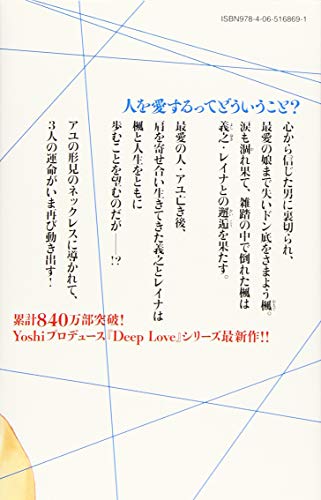 ISBN978-4-06-516869-1
人を愛するってどういうこと?
心から信じた男に裏切られ、
最愛の娘まで失いドン底をさまよう楓。
涙も涸れ果て、雑踏の中で倒れた楓は
義之・レイナとの邂逅を果たす。
最愛の人・アユ亡き後、
肩を寄せ合い生きてきた義之とレイナは
楓と人生をともに
歩むことを望むのだが――!?
アユの形見のネックレスに導かれて、
3人の運命がいま再び動き出す!
累計840万部突破!
Yoshiプロデュース『Deep Love』シリーズ最新作!!